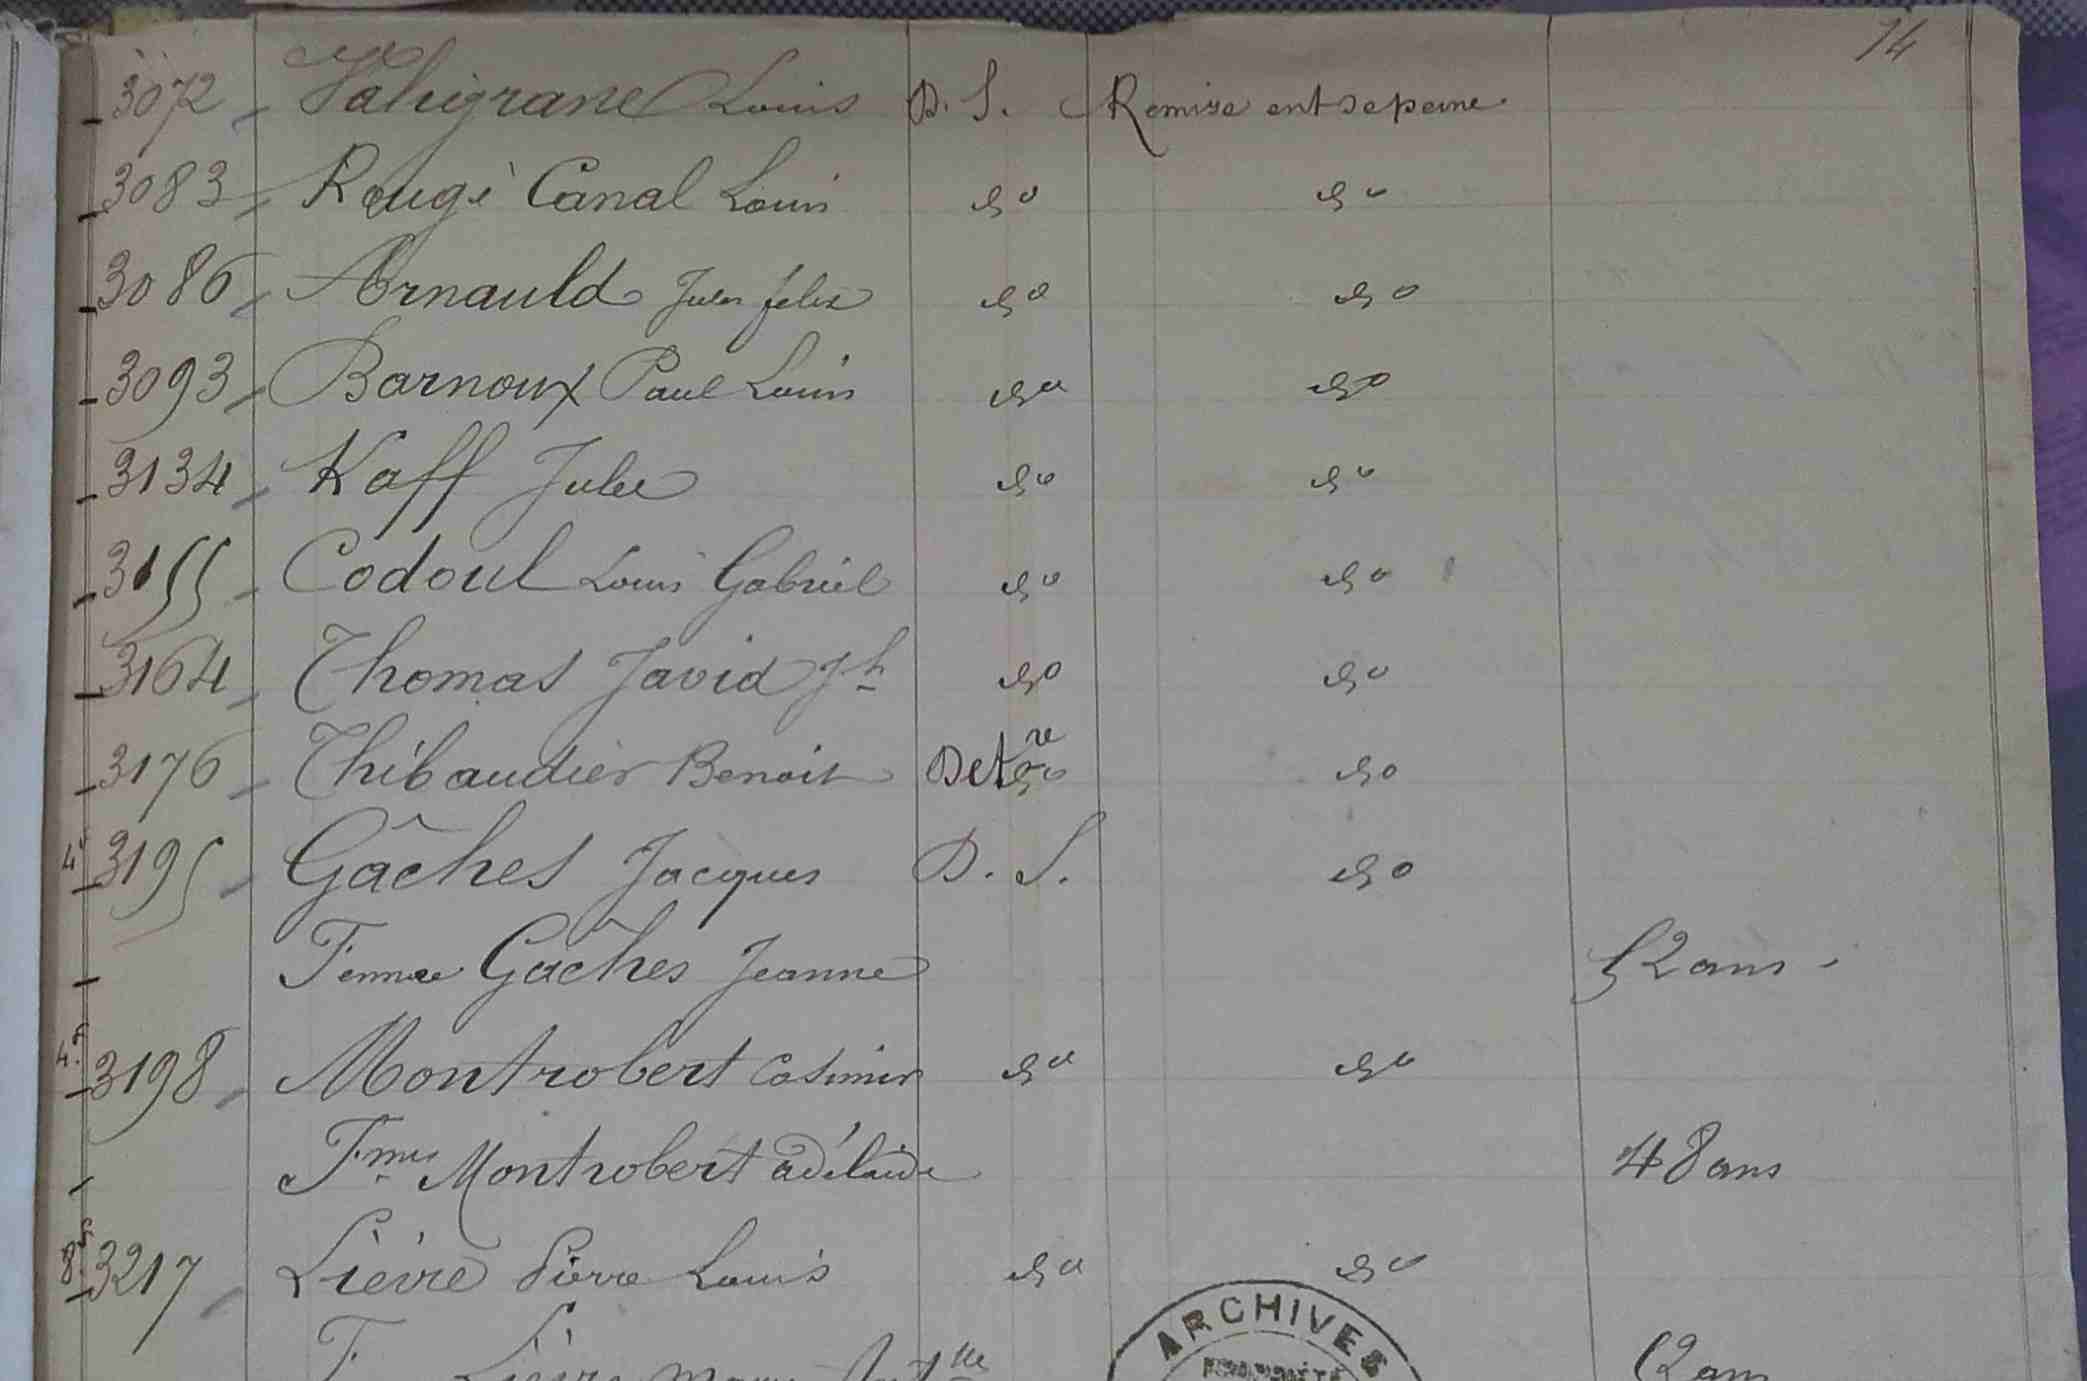 74
3072 Louis D. S. Remise ent de peine
3083 Rougé Canal Louis do do
3086 Arnauld Jules felix do do
3093 Barnoux Paul Louis do do
3134 Kaff Jules do do
3155 Codoul Louis Gabriel do do
3164 Thomas Javid Jh do do
3176 Thibaudier Benoit Detre do
4f 3195 Gâches Jacques D. S. do
Femme Gâches Jeanne 52 ans
4f 3198 Montrobert Casimir do do
Fme Montrobert adélaïde 48 ans
8f 3217 Lièvre Pierre Louis do do
ARCHIVES